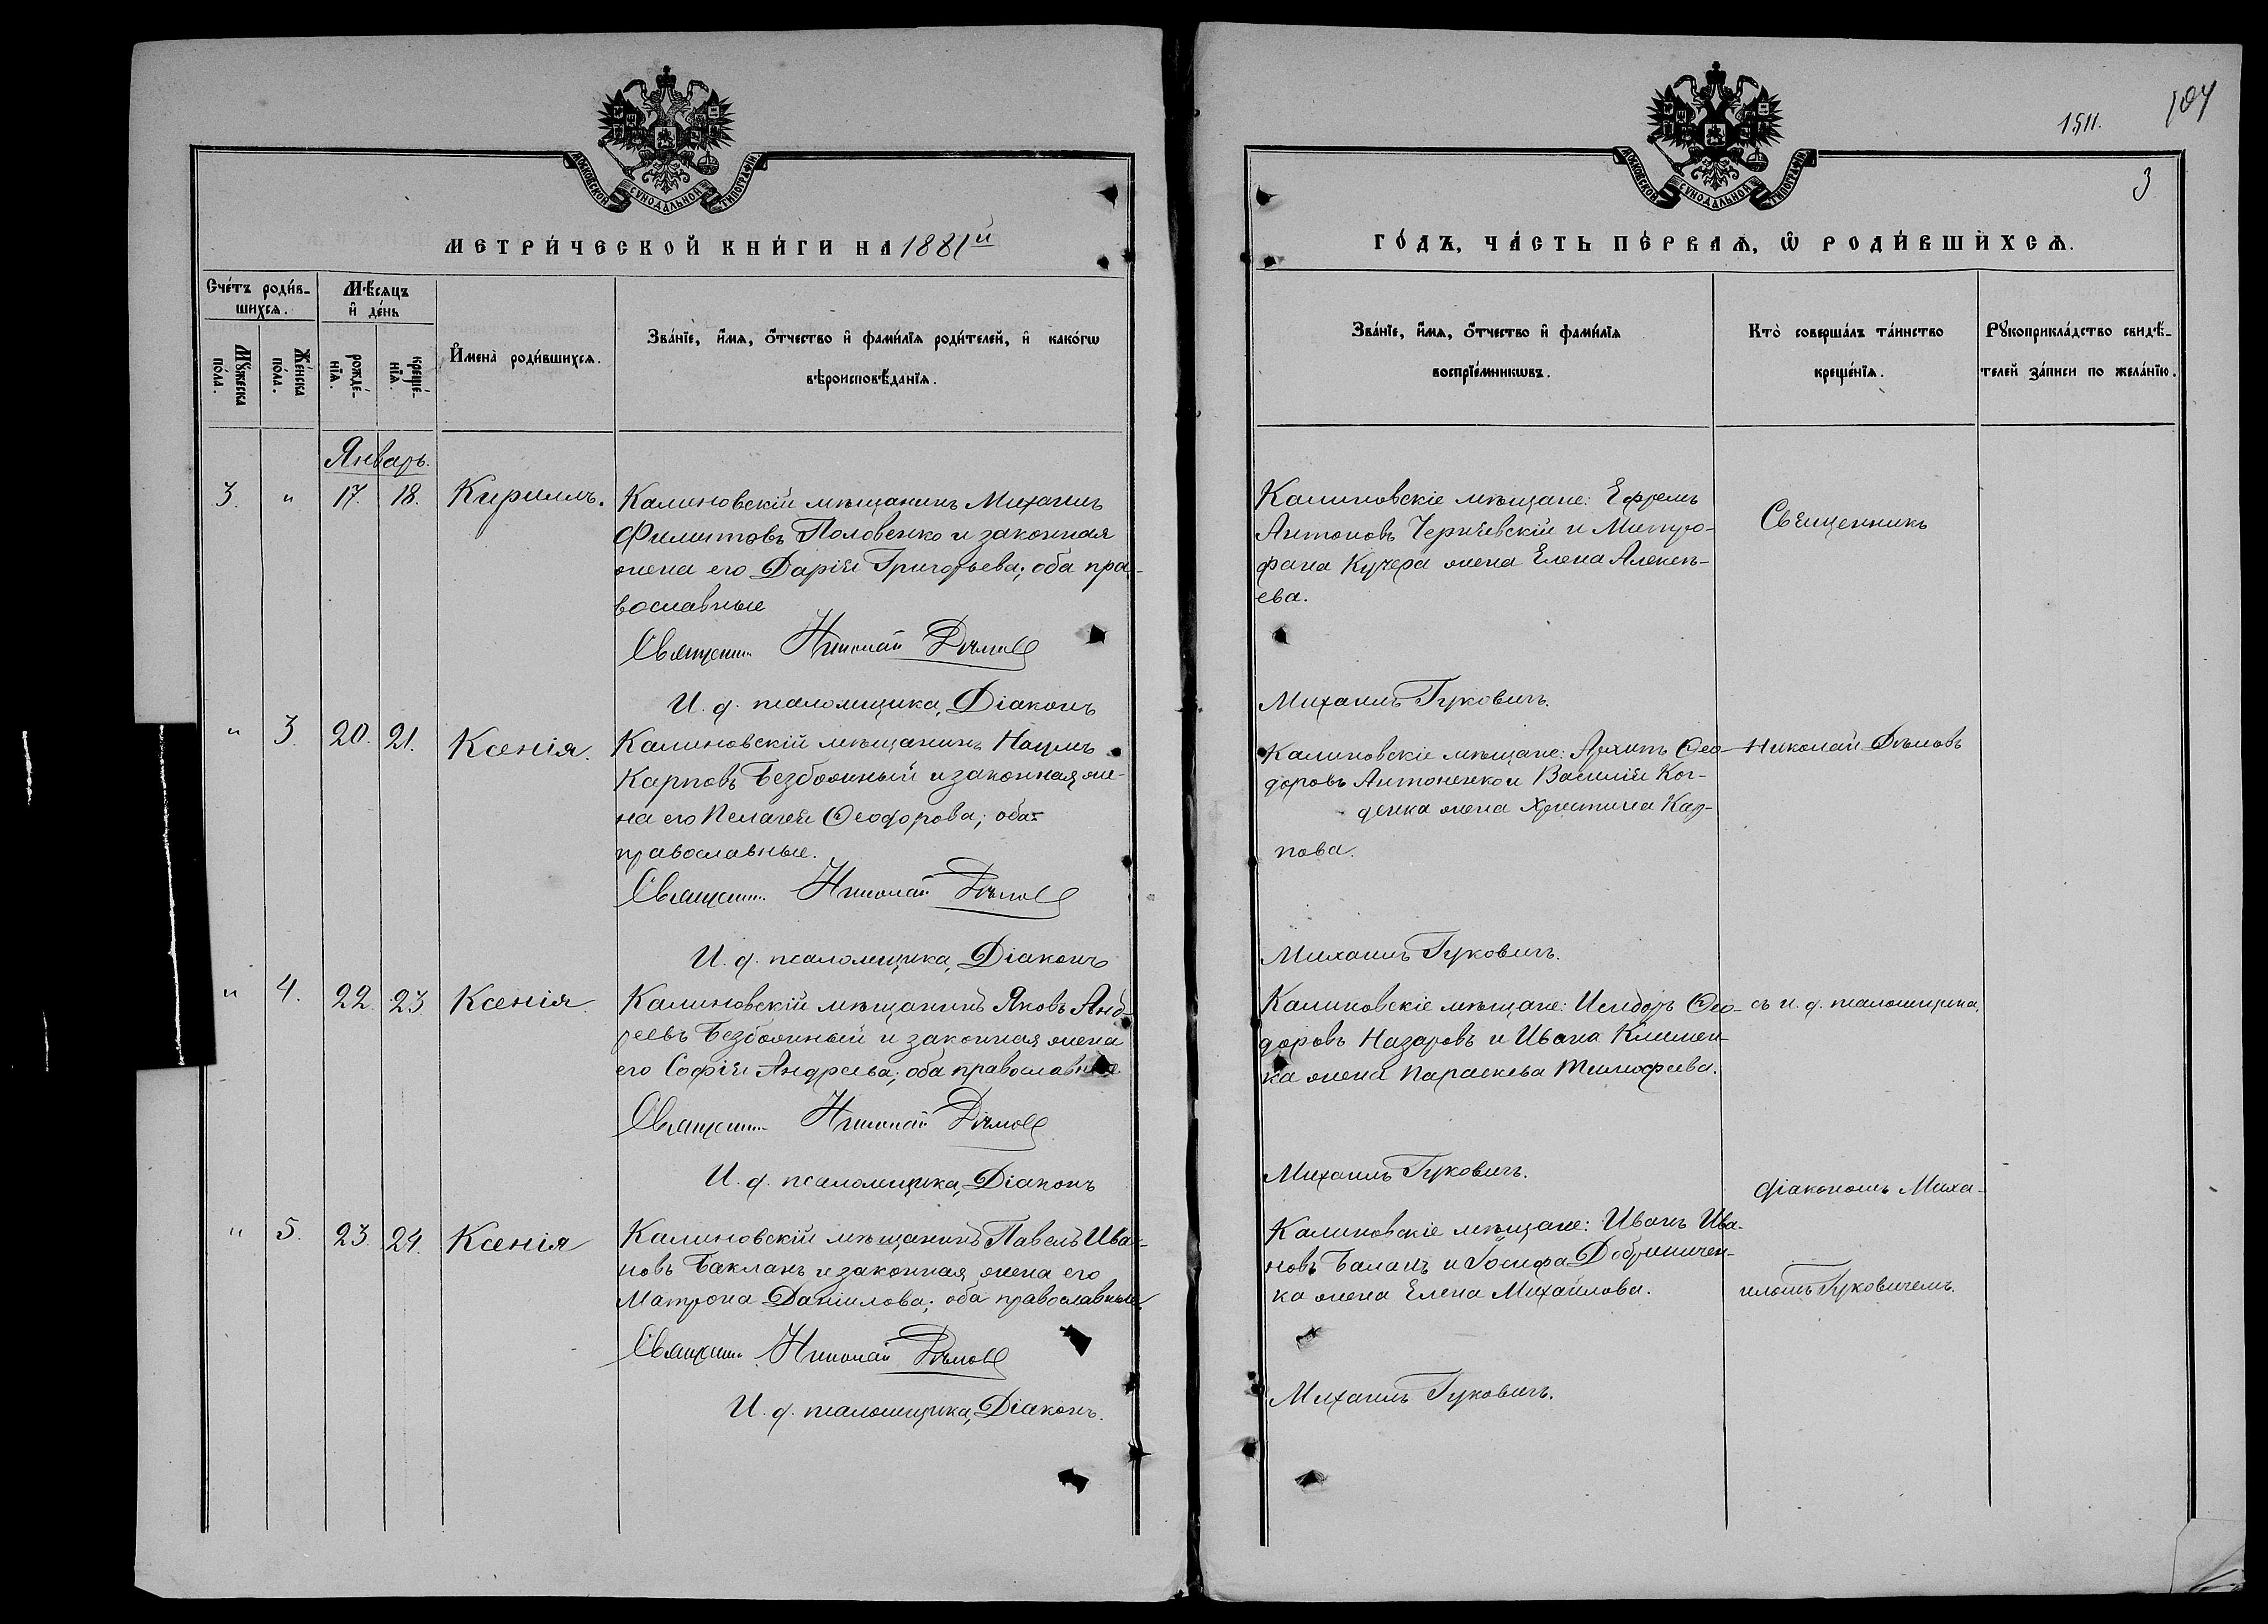 МОСКОВСКОЙ СѴНОДАЛЬНОЙ ТИПОГРАФІИ
МЕТРИ́ЧЕСКОЙ КНИ́ГИ НА 1881й
Сче́тъ роди́в-
шихсѧ.
Мѣ́сѧцъ
и҆ де́нь
Мꙋ́жеска
по́ла.
Же́нска
по́ла.
рожде́-
нїѧ.
креще́-
нїѧ.
И҆мена̀ роди́вшихсѧ.
Зва́нїе, и҆́мѧ, ѻ҆́тчество и҆ фами́лїѧ роди́телей, и҆ како́гѡ
вѣроисповѣ́данїѧ.
Январь.
3. " 17. 18. Кириллъ.
Калиновскій мѣщанинъ Михаилъ
Филиповъ Половенко и законная
жена его Дарія Григорьева; оба пра-
вославные
Священн. Николай Дѣмовъ
И. д. псаломщика, Діаконъ
" 3. 20. 21. Ксенія.
Калиновскій мѣщанинъ Наумъ
Карповъ Безбожный и законная же-
на его Пелагея Ѳеодорова; оба
православные.
Священн. Николай Дѣмовъ
И. д. псаломщика, Діаконъ
" 4. 22. 23 Ксенія.
Калиновскій мѣщанинъ Яковъ Анд-
реевъ Безбожный и законная жена
его Софія Андреева; оба православные.
Священн. Николай Дѣмовъ
И. д. псаломщика, Діаконъ
" 5. 23. 24. Ксенія
Калиновскій мѣщанинъ Павелъ Ива-
новъ Бакланъ и законная жена его
Матрона Даніилова; оба православные.
Священн. Николай Дѣмовъ
И. д. псаломщика, Діаконъ.
1511. 104
3
МОСКОВСКОЙ СѴНОДАЛЬНОЙ ТИПОГРАФІИ
ГО́ДЪ, ЧА́СТЬ ПЕ́РВАѦ, Ѽ РОДИ́ВШИХСѦ.
Зва́нїе, и҆́мѧ, ѻ҆́тчество и҆ фами́лїѧ
воспрїе́мникѡвъ.
Кто̀ соверша́лъ та́инство
креще́нїѧ.
Рꙋкоприкла́дство свидѣ́-
телей за́писи по жела́нїю.
Калиновскіе мѣщане: Ефремъ
Антоновъ Чернявскій и Митро-
фана Кучера жена Елена Алексѣ-
ева.
Михаилъ Гуковичъ.
Калиновскіе мѣщане: Ѳео-
доровъ Антоненко и Василія Ког-
денка жена Христина Кар-
пова.
Михаилъ Гуковичъ.
Калиновскіе мѣщане: Исидоръ Ѳео-
доровъ Назаровъ и Ивана Климен-
ка жена Параскева Тимофеева.
Михаилъ Гуковичъ.
Калиновскіе мѣщане: Иванъ Ива-
новъ Баланъ и Іосифа Добриничен-
ка жена Елена Михайлова.
Михаилъ Гуковичъ.
Священникъ
Николай Дѣмовъ
съ и. д. псаломщика,
діакономъ Миха-
иломъ Гуковичемъ.